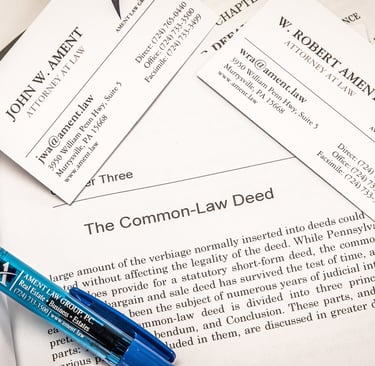 AMENT LAW GR
JOHN W. AMENT
ATTORNEY AT LAW
Direct: (724) 765-0440
Office: (724) 733-3500
Facsimile: (724) 733-3499
jwa@ament.law
3950 William Penn Hwy, Suite 5
Murrysville, PA 15668
www.ament.law
CHAPTE
W. ROBERT AMENT
ATTORNEY AT LAW
wra@ament.law
3950 William Penn Hwy, Suite 5
Murrysville, PA 15668
www.ament.law
Direct: (724)
Office: (724)
Facsimile: (724)
er Three
The Common-Law Deed
arge amount of the verbiage normally inserted into deeds could
without affecting the legality of the deed. While Pennsylva
oes provide for a statutory short-form deed, the commo
argain and sale deed has survived the test of time, a
been the subject of numerous years of judicial int
mmon-law deed is divided into three princ
bendum, and Conclusion. These parts, and
cluded in them, are discussed in greater d
pret
parts:
various p
AMENT LAW GROUP, PC
Real Estate • Business • Estates
(724) 733-3500 | www.ament.law